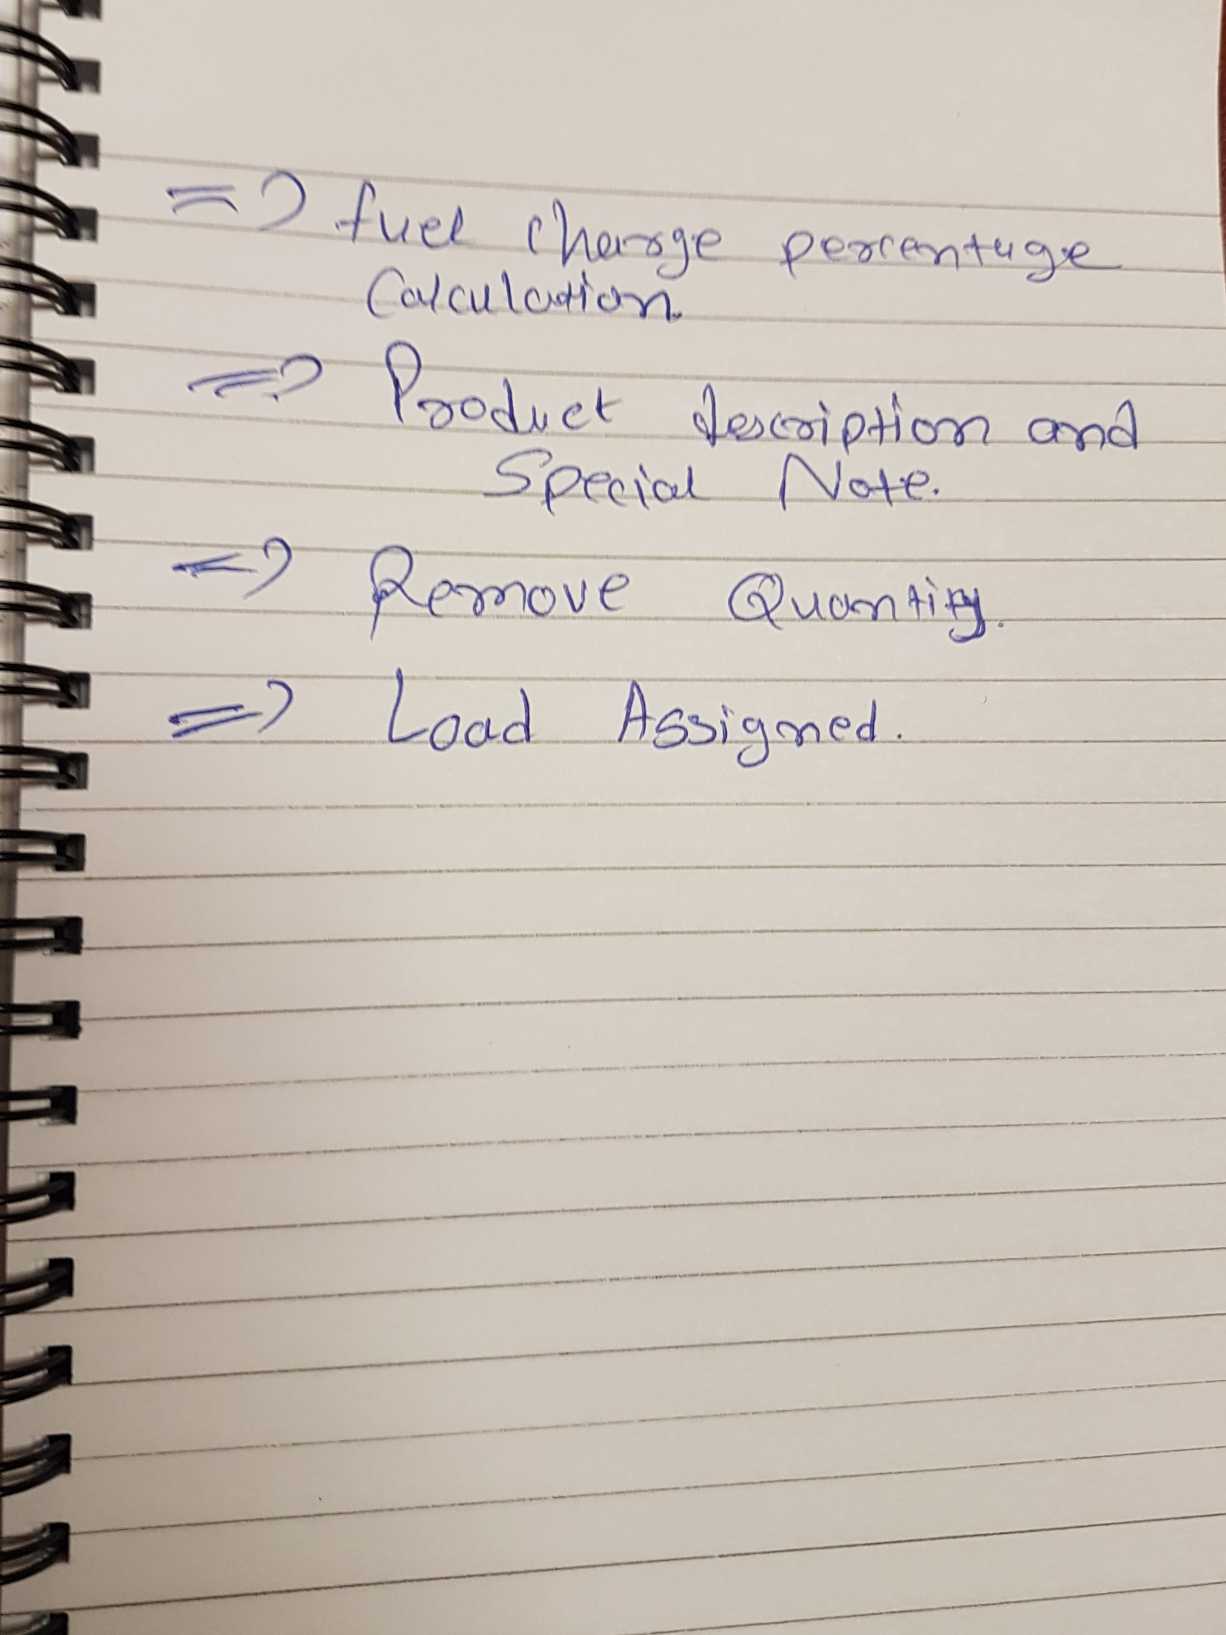 => fuel charge percentage
Calculation
=> Product description and
Special Note.
=> Remove Quantity.
=> Load Assigned.